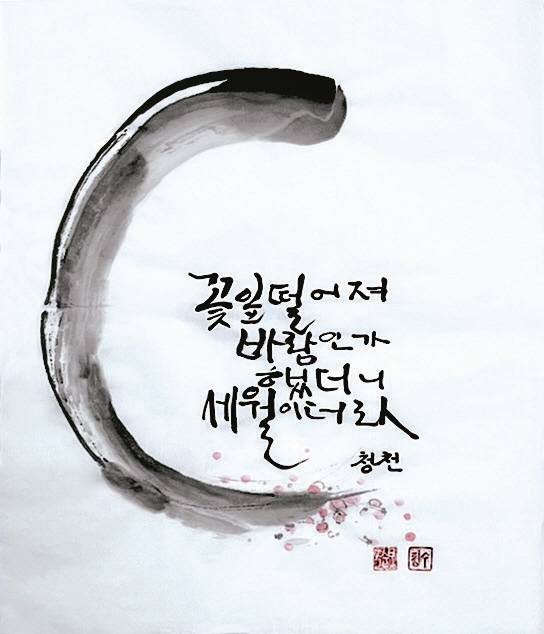 꽃잎떨어져
바람인가
했더니
세월이더라
청천